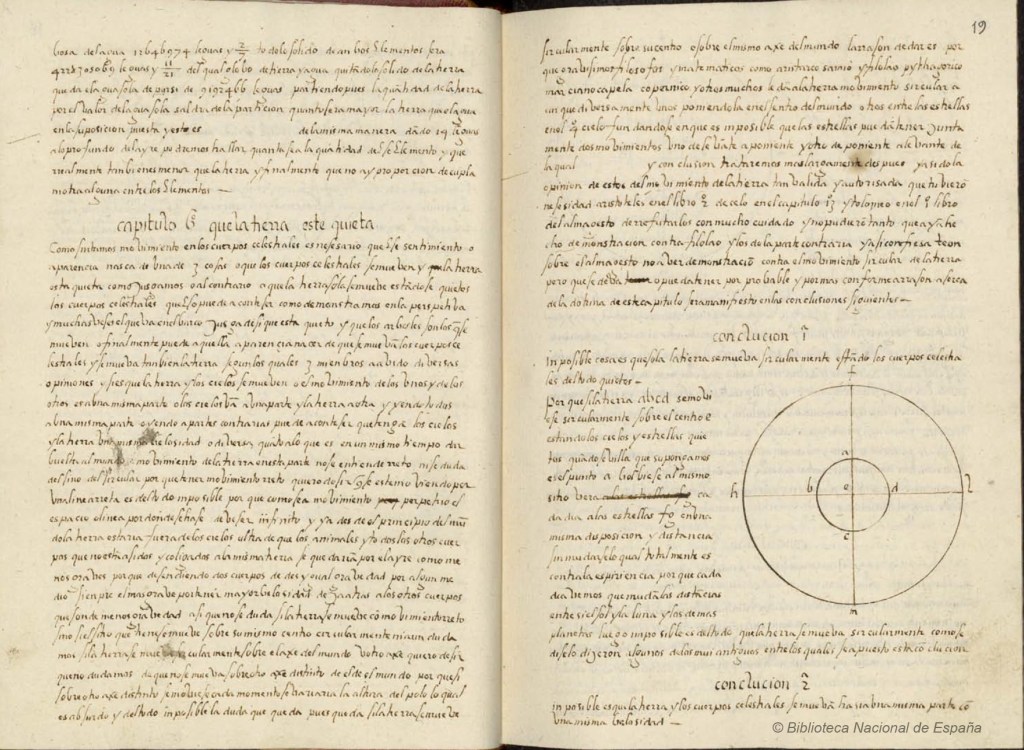 bosa del agua 12646974 leguas y 2/7 todo lo solido de anbos Elementos sera
y 11/21 del qual globo de tierra y agua quitado lo solido de la tierra
queda el agua sola de leguas partiendo pues la quantidad de la tierra
por el valor del agua sola saldra de la particion quanto sera mayor la tierra que la agua
en la suposicion puesta y esto es de la misma manera dado 14 leguas
a lo profundo del ayre podremos hallar quanta sea la quantidad deste Elemento y que
realmente tanbien es menor que la tierra y finalmente que no ay proporcion decupla
en otra alguna entre los Elementos
capitulo 6º que la tierra este quieta
Como sintamos movimiento en los cuerpos celestiales es necesario que este sentimiento o
aparencia nasca de una de 3 cosas o que los cuerpos celestiales se mueven y la tierra
esta quieta como jusgamos o al contrario que la tierra sola se mueve estandose quietos
los cuerpos celestiales que eso puede aconteser como demostramos en la perspetiva
y muchas veses el que va en el barco jusga desi que esta quieto y que los arboles son los que se
mueven o finalmente puede aquella aparencia naser de que se muevan los cuerpos ce
lestiales y se mueva tanbien la tierra segun los quales 3 miembros a avido diversas
opiniones y si es que la tierra y los cielos se mueven o el movimiento de los unos y de los
otros es a una misma parte o los cielos van a una parte y la tierra a otra y yendo todos
a una misma parte o yendo a partes contrarias puede acontesser que tengan los cielos
y la tierra una misma velosidad o diversa quanto a lo que es en un mismo tienpo dar
buelta al mundo movimiento de la tierra en esta parte no se entiende reto ni se duda
del sino del sircular por que tener movimiento reto quiero desir que este moviendo por
una linea reta es del todo imposible por que como sea movimiento perpetuo el
espacio o linea por donde se hase deve ser infinito y ya desde el principio del mun
do la tierra estaria fuera de los cielos ultra de que los animales y todos los otros cuer
pos que no estan asidos y coligados a la misma tierra se quedarian por el ayre como me
nos graves porque desendiendo dos cuerpos de desygual gravedad por algun me
dio sienpre el mas grave por tener mayor belosidad dexa atras a los otros cuerpos
que son de menos gravedad asi que no se duda si la tierra se mueve con movimiento reto
sino si el sitio que tiene se mueve sobre su mismo centro circularmente ni aun duda
mos si la tierra se mueve sircularmente sobre el axe del mundo u otro axe quiero desir
que no dudamos de que no se mueva sobre otro axe distinto del del mundo por que si
sobre otro axe distinto se moviese cada momento se variaria la altura del polo lo qual
es absurdo y del todo inposible la duda que queda pues queda si la tierra se mueve
19
sircularmente sobre su centro o sobre el mismo axe del mundo la rason de dudar es por
que gravisimos filosofos y matematicos como aristarco samio y filolao pythagorico
marciano capela copernico y otros muchos le dan a la tierra movimiento sircular a
un que diversamente unos poniendola en el sentro del mundo otros entre las estrellas
en el 4º cielo fundandose en que es inposible que las estrellas puedan tener junta
mente dos movimientos uno de levante a poniente y otro de poniente a levante de
la qual y conclusion trataremos mas largamente despues y a sido la
opinion de estos del movimiento de la tierra tan valida y autorisada que tuvieron
nesesidad aristoteles en el libro 2º de celo en el capitulo 13 y tolomeo en el 1º libro
del almagesto de refutarlos con mucho cuidado y no pudieron tanto que ayan he
cho demonstracion contra filolao y los de la parte contraria y asi confiesa teon
sobre el almagesto no aver demonstracion contra el movimiento sircular de la tierra
pero que se deva o pueda tener por probable y por mas conforme a rason aserca
de la dotrina de este capitulo sera manifiesto en las conclusiones siguientes
conclucion 1ª
Inposible cosa es que sola la tierra se mueva sircularmente estando los cuerpos celestia
les del todo quietos
f
Por que si la tierra abcd se movi
ese sircularmente sobre el centro e
estando los cielos y estrellas que
tas quando sevilla que supongamos
es el punto a bolbiese al mismo
sitio vera a las estrellas fg ca
da dia a las estrellas fg en una
misma disposicion y distancia
sin mudarse lo qual totalmente es
contra la espiriencia por que cada
dia vemos que mudan las distancias
entre si el sol y la luna y los demas
planetas luego imposible es del todo que la tierra se mueva sircularmente como se
diselo dixeron algunos de los mui antiguos entre los quales sea puesto esta conclucion
a
h
b
e
d
l
c
m
conclucion 2ª
inposible es que la tierra y los cuerpos celestiales se muevan hasia una misma parte con
una misma belosidad
© Biblioteca Nacional de España